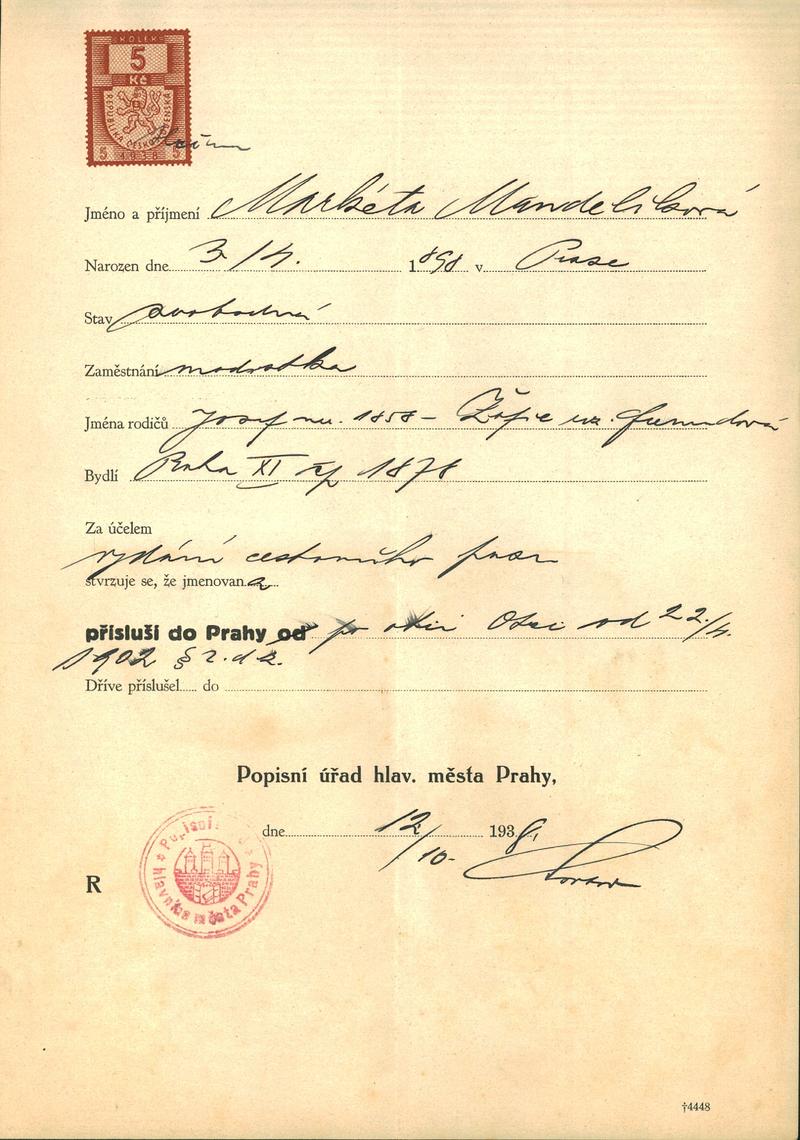 KOLEK
5
Kč
REPUBLIKA ČESKOSLOVENSKÁ
5 1938 5
Jméno a příjmení Markéta Mandelíková
Narozen dne 3/4. 1898 v Praze
Stav svobodná
Zaměstnání modistka
Jména rodičů Josef nar. 1858 - Žofie roz.
Bydlí Praha XI čp 1878
Za účelem
vydání cestovního pasu
stvrzuje se, že jmenovan a
přísluší do Prahy od po otci Otci od 22/4.
1902 § 2. d z.
Dříve příslušel..... do
Popisní úřad hlav. města Prahy,
dne 12/10- 1938,
Popisní
hlavního města Prahy
R
†4448